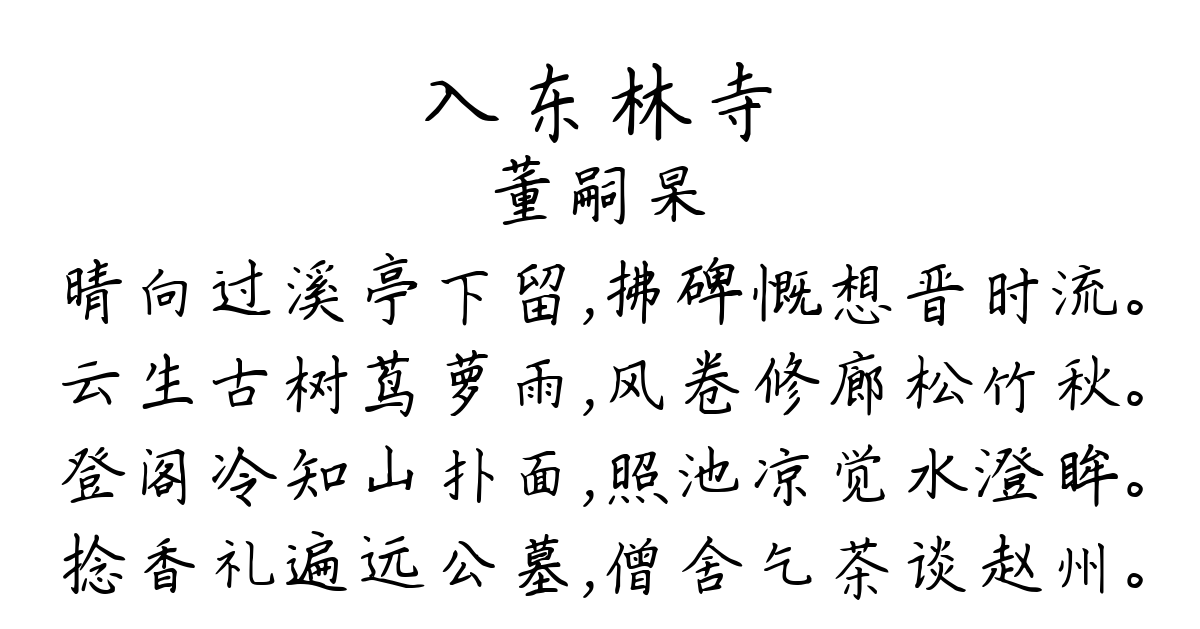 入东林寺
董嗣杲
晴向过溪亭下留,拂碑慨想晋时流。
云生古树茑萝雨,风卷修廊松竹秋。
登阁冷知山扑面,照池凉觉水澄眸。
捻香礼遍远公墓,僧舍乞茶谈赵州。